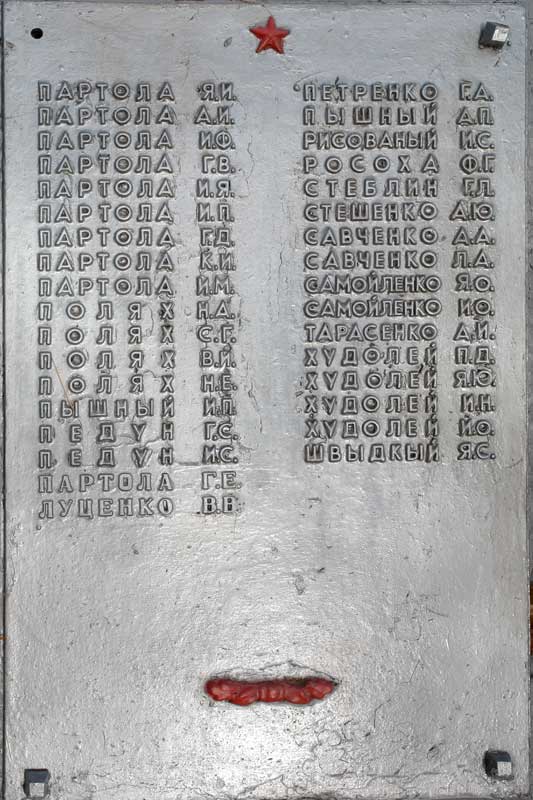 ПАРТОЛА Я.И.
ПАРТОЛА А.И.
ПАРТОЛА И.Ф.
ПАРТОЛА Г.В.
ПАРТОЛА И.Я.
ПАРТОЛА И.П.
ПАРТОЛА Г.Д.
ПАРТОЛА К.И.
ПАРТОЛА И.М.
ПОЛЯХ Н.А.
ПОЛЯХ С.Г.
ПОЛЯХ В.И.
ПОЛЯХ Н.Е.
ПЫШНЫЙ И.П.
ПЕДУН Г.С.
ПЕДУН И.С.
ПАРТОЛА Г.Е.
ЛУЦЕНКО В.В.
ПЕТРЕНКО Г.А.
ПЫШНЫЙ Д.П.
РИСОВАНЫЙ И.С.
РОСОХА Ф.Г.
СТЕБЛИН Г.Л.
СТЕШЕНКО А.Ю.
САВЧЕНКО А.А.
САВЧЕНКО Л.А.
САМОЙЛЕНКО Я.О.
САМОЙЛЕНКО И.О.
ТАРАСЕНКО А.И.
ХУДОЛЕЙ П.Д.
ХУДОЛЕЙ Я.Ю.
ХУДОЛЕЙ И.Н.
ХУДОЛЕЙ И.О.
ШВЫДКЫЙ Я.С.